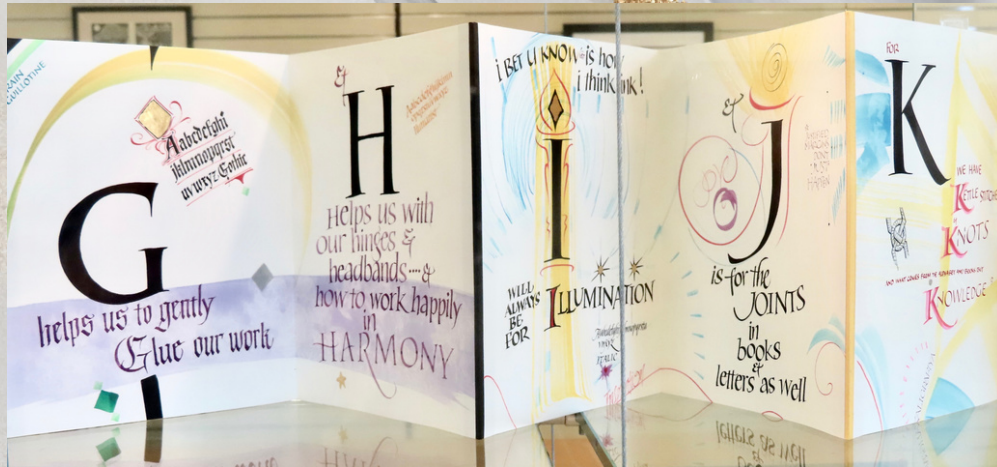 RAIN
GUILLOTINE
Aabcdefghi
jklmnopqrst
uvwxyz Gothic
G
helps us to gently
Glue our work
&
H
Helps us with
our hinges &
headbands....&
how to work happily
in
HARMONY
i BET U KNOW is how
i think ink!
I
WILL
ALWAYS
BE
FOR
ILLUMINATION
&
J
is for the
JOINTS
in
books
&
letters as well
FOR
K
WE HAVE
KETTLE STITCHES
KNOTS
KNOWLEDGE
letters as well